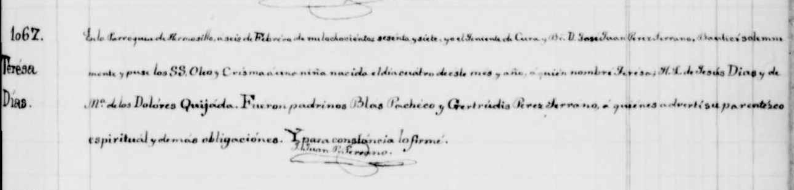 1067.
Terésa
Dias.
En la Parroquia de Hermosillo, a seis de Febrero de mil ochocientos sesenta y siete, yo el Teniente de Cura y Br. D. José Juan Pérez Serrano, Bauticé solemne
mente y puse los SS. Oleo y Crisma a una niña nacida el dia cuatro de este mes y año, á quien nombré Teresa; H. L. de Jesús Dias y de
Mª. de los Dolóres Quijada. Fueron padrinos Blas Pachéco y Gertrúdis Pérez Serrano, á quiénes advertí su parentésco
espirituál y demás obligaciónes. Y para constáncia lo firmé.
J. Juan P. Serrano.